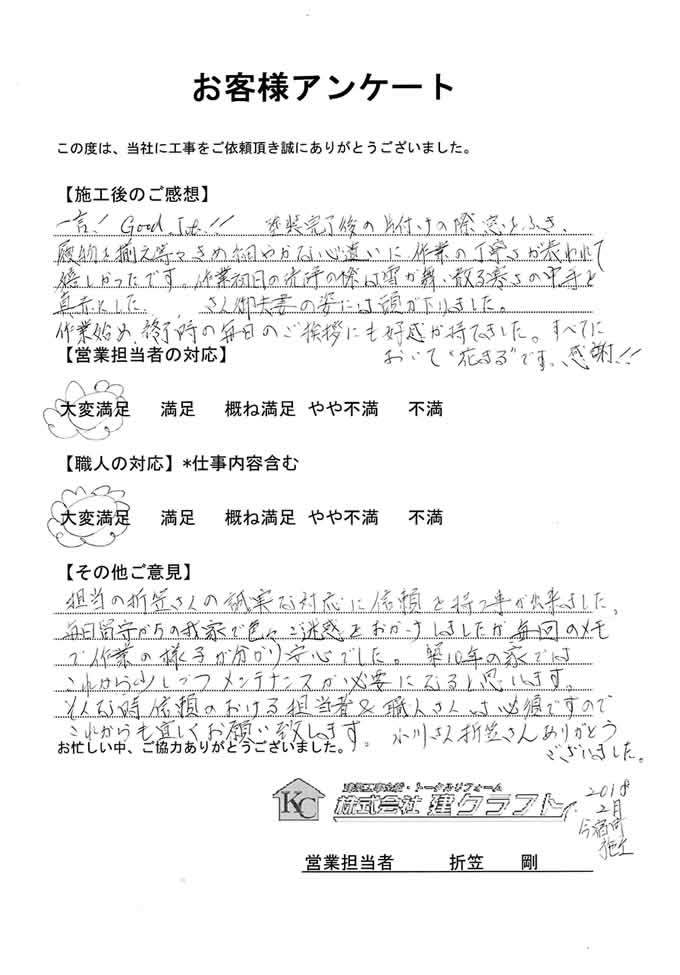 お客様アンケート
この度は、当社に工事をご依頼頂き誠にありがとうございました。
【施工後のご感想】
一言! Good Job!! 塗装完了後の片付けの際、窓をふき、
履物を揃え等々きめ細やかな心遣いに作業の丁寧さが表われて
嬉しかったです。作業初日の洗浄の際は雪が舞い散る寒さの中手を
真赤にした さん御夫妻の姿には頭が下りました。
作業始め、終了時の毎日のご挨拶にも好感が持てました。すべてに
おいて"花まる"です。感謝!!
【営業担当者の対応】
大変満足 満足 概ね満足 やや不満 不満
【職人の対応】*仕事内容含む
大変満足 満足 概ね満足 やや不満 不満
【その他ご意見】
担当の折笠さんの誠実な対応に信頼を持つ事が出来ました。
毎日留守がちの我家で色々ご迷惑をおかけしましたが毎回のメモ
で作業の様子が分かり安心でした。築10年の家では
これから少しづつメンテナンスが必要になると思います。
そんな時信頼のおける担当者&職人さんは必須ですので
これからも宜しくお願い致します。 さん折笠さんありがとう
ございました。
お忙しい中、ご協力ありがとうございました。
KC
株式会社 建クラフト
2018
2月
施工
営業担当者 折笠 剛